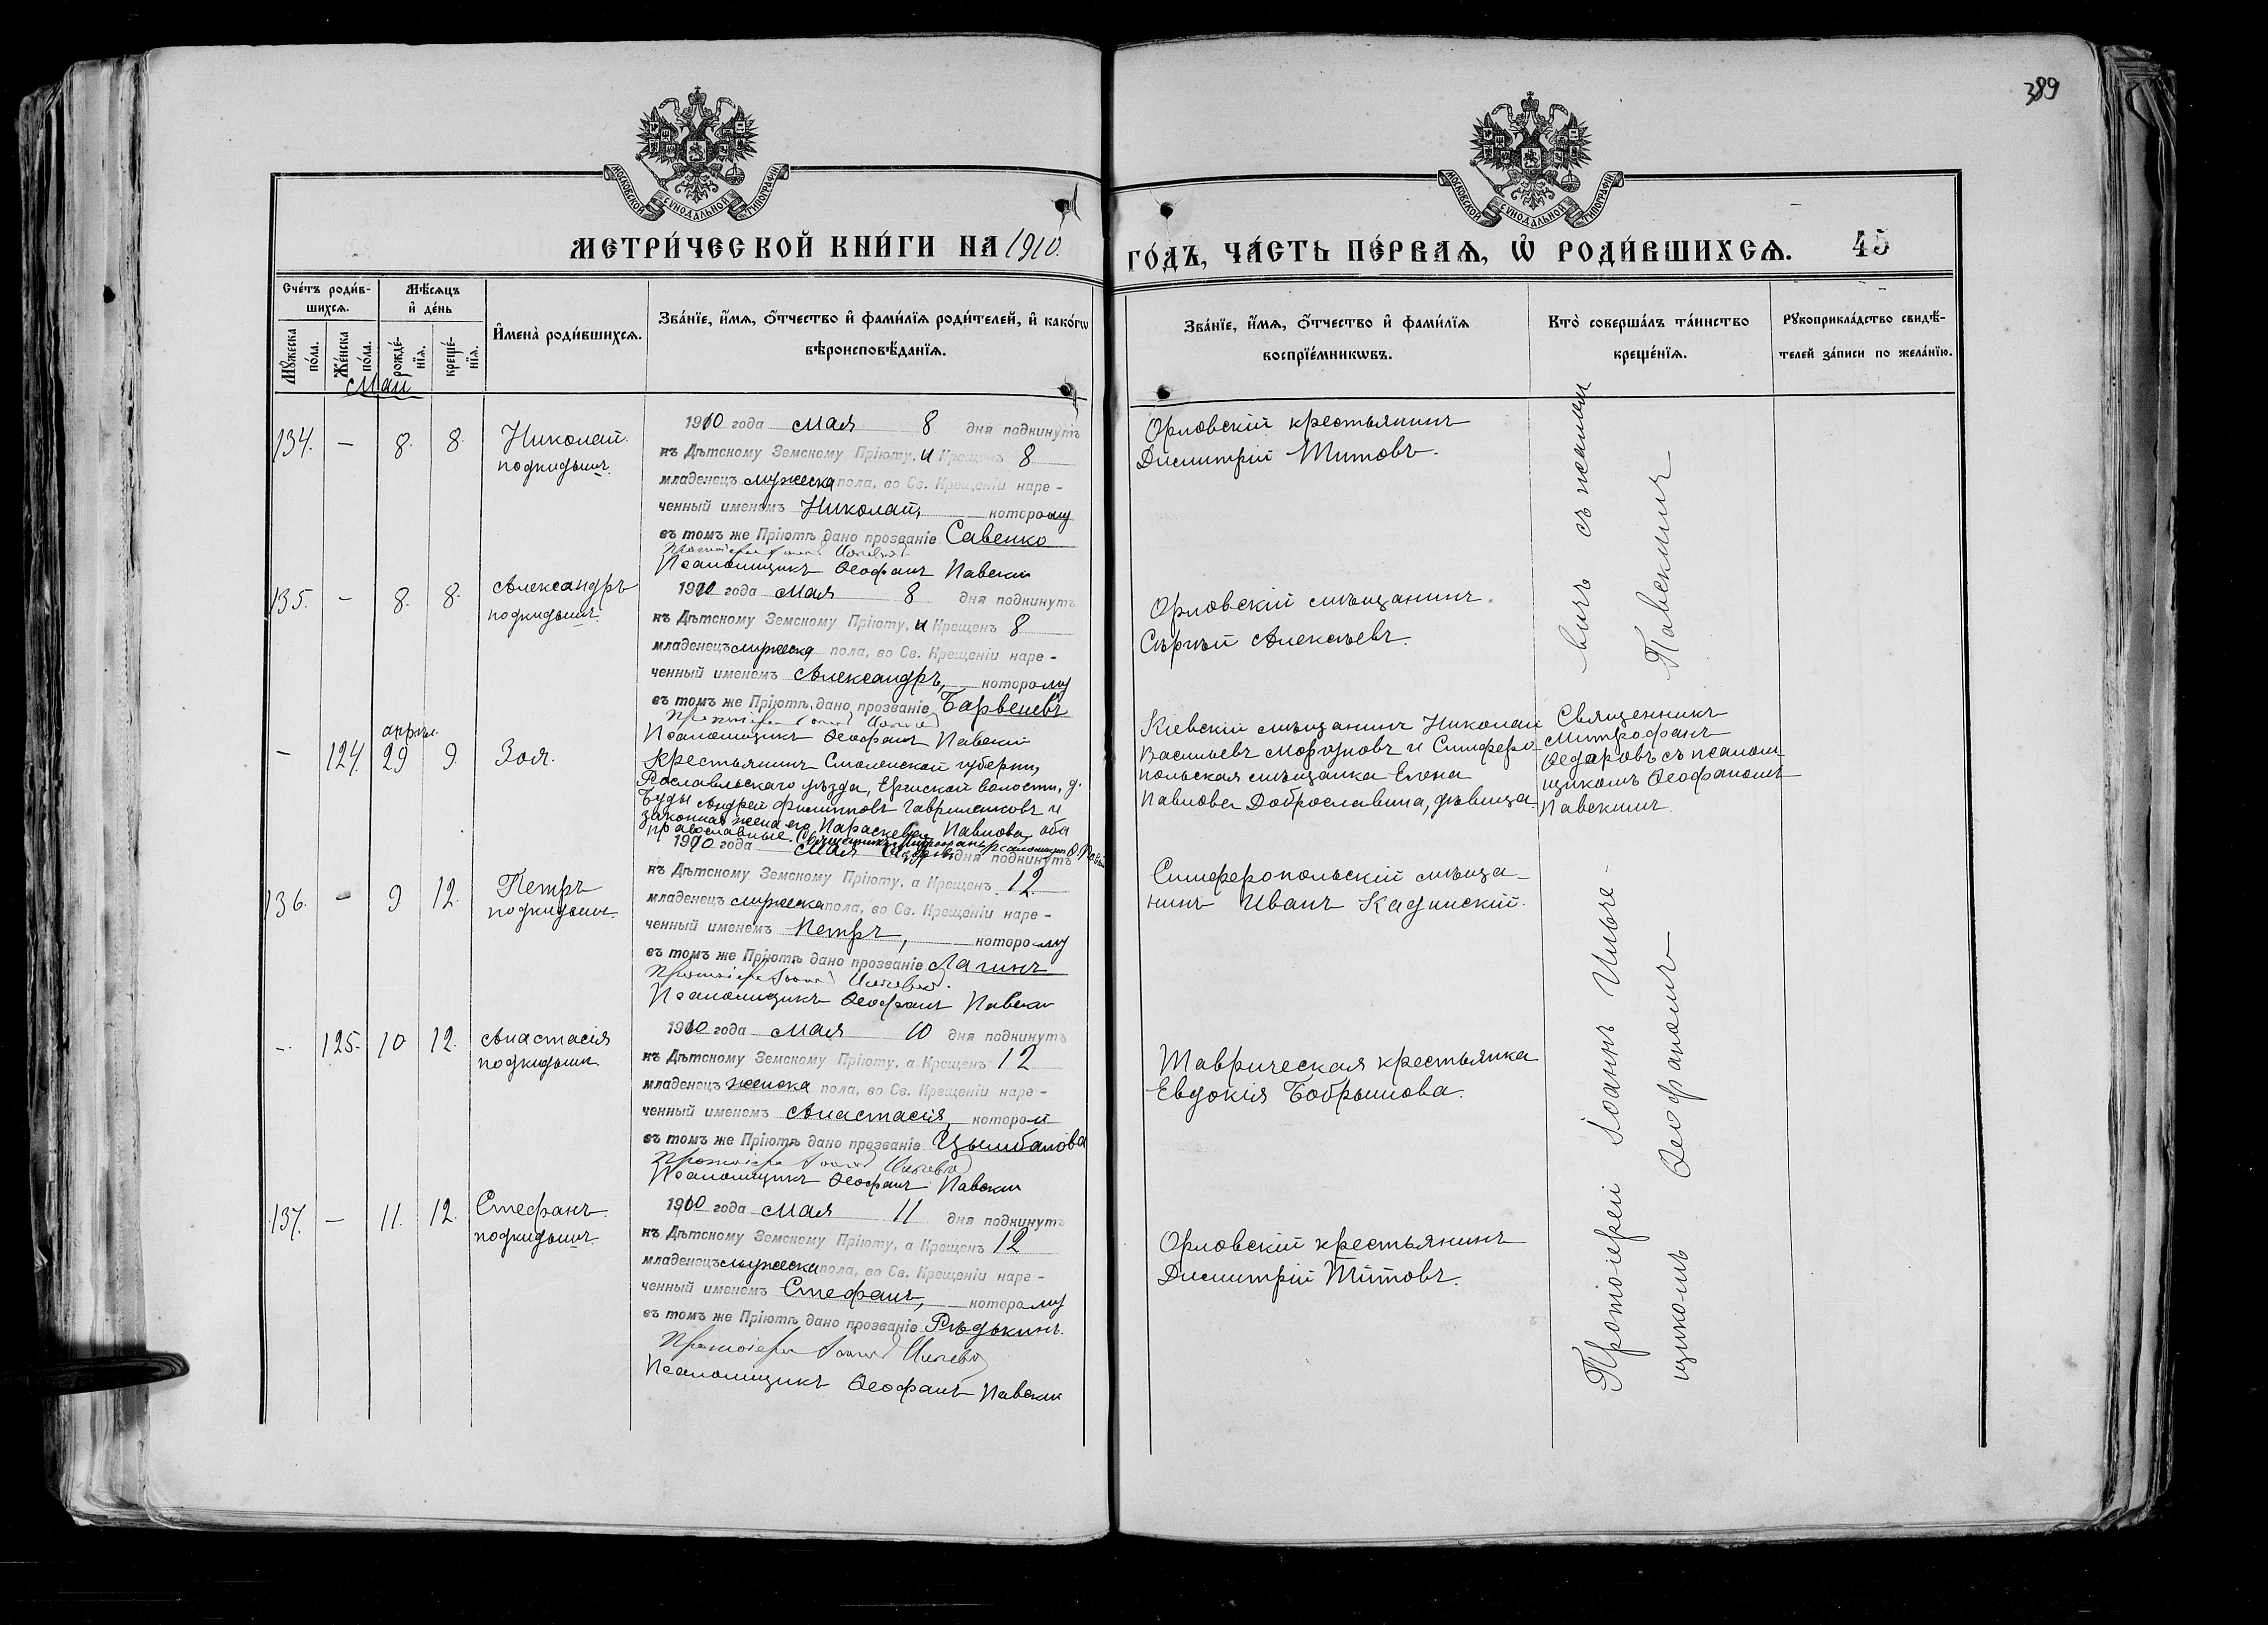 389
МОСКОВСКОЙ СѴНОДАЛЬНОЙ ТИПОГРАФІИ
МОСКОВСКОЙ СѴНОДАЛЬНОЙ ТИПОГРАФІИ
МЕТРИ́ЧЕСКОЙ КНИ́ГИ НА 1910.
ГО́ДЪ, ЧА́СТЬ ПЕ́РВАѦ, Ѡ҆ РОДИ́ВШИХСѦ. 45
Сче́тъ роди́в-
шихсѧ.
Мꙋ́жеска по́ла.
Же́нска по́ла.
Мѣ́сѧцъ
и҆ де́нь
рожде́-
нїѧ.
креще́-
нїѧ.
И҆мена̀ роди́вшихсѧ.
Зва́нїе, и҆́мѧ, ѻ҆́тчество и҆ фами́лїѧ роди́телей, и҆ како́гѡ
вѣроисповѣ́данїѧ.
Зва́нїе, и҆́мѧ, ѻ҆́тчество и҆ фами́лїѧ
воспрїе́мникѡвъ.
Кто̀ соверша́лъ та́инство
креще́нїѧ.
Рꙋкоприкла́дство свидѣ́-
телей за́писи по жела́нїю.
Май
134. — 8. 8. Николай
подкидышъ.
1910 года мая 8 дня подкинутъ
къ Дѣтскому Земскому Пріюту, и Крещенъ 8
младенецъ мужеска пола, во Св. Крещеніи наре-
ченный именемъ Николай, которому
въ томъ же Пріютѣ дано прозваніе Савенко
Протоіерей Іоаннъ
Псаломщикъ Ѳеофанъ Павскій
Орловскій крестьянинъ
Димитрій Титовъ.
135. — 8. 8. Александръ
подкидышъ.
1910 года мая 8 дня подкинутъ
къ Дѣтскому Земскому Пріюту, и Крещенъ 8
младенецъ мужеска пола, во Св. Крещеніи наре-
ченный именемъ Александръ, которому
въ томъ же Пріютѣ дано прозваніе
Протоіерей Іоаннъ
Псаломщикъ Ѳеофанъ Павскій
Орловскій мѣщанинъ
Сергѣй Алексѣевъ.
— 124. апрѣл. 29 9. Зоя.
Крестьянинъ Смоленской губерніи,
Рославльскаго уѣзда, волости, д.
Буды Андрей Филипповъ Гавриленковъ и
законная жена его Параскева Павлова, оба
православные. Священникъ Митрофанъ псаломщикъ
Кіевскій мѣщанинъ Николай
Васильевъ Моргуновъ и Симферо-
польская мѣщанка Елена
Павлова Доброславина, дѣвица.
Священникъ
Митрофанъ
Ѳедоровъ съ псалом
щикомъ Ѳеофаномъ
Павскимъ.
136. — 9 12. Петръ
подкидышъ.
1910 года мая дня подкинутъ
къ Дѣтскому Земскому Пріюту, а Крещенъ 12
младенецъ мужеска пола, во Св. Крещеніи наре-
ченный именемъ Петръ, которому
въ томъ же Пріютѣ дано прозваніе Лагинъ
Протоіерей Іоаннъ
Псаломщикъ Ѳеофанъ Павскій
Симферопольскій мѣща-
нинъ Иванъ Кадинскій.
— 125. 10 12. Анастасія
подкидышъ.
1910 года мая 10 дня подкинутъ
къ Дѣтскому Земскому Пріюту, а Крещенъ 12
младенецъ женска пола, во Св. Крещеніи наре-
ченный именемъ Анастасія, которой
въ томъ же Пріютѣ дано прозваніе Цымбалова
Протоіерей Іоаннъ
Псаломщикъ Ѳеофанъ Павскій
Таврическая крестьянка
Евдокія Бобрышова.
137. — 11. 12. Стефанъ
подкидышъ.
1910 года мая 11 дня подкинутъ
къ Дѣтскому Земскому Пріюту, а Крещенъ 12
младенецъ мужеска пола, во Св. Крещеніи наре-
ченный именемъ Стефанъ, которому
въ томъ же Пріютѣ дано прозваніе Рѣдькинъ.
Протоіерей Іоаннъ
Псаломщикъ Ѳеофанъ Павскій
Орловскій крестьянинъ
Димитрій Титовъ.
Протоіерей Іоаннъ Ильче-
вичъ съ псалом
щикомъ Ѳеофаномъ
Павскимъ